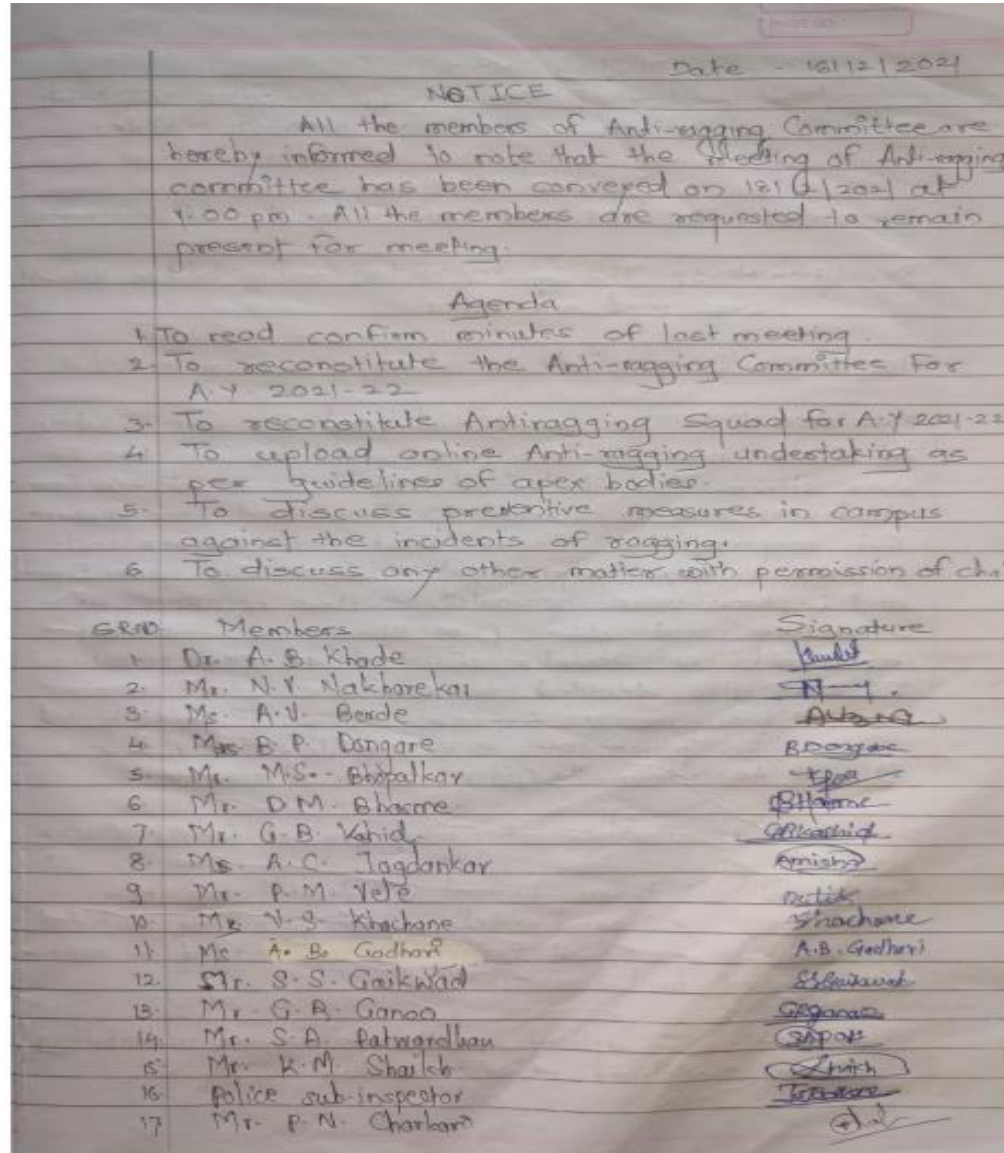 Date - 16/12/2021
NOTICE
All the members of Anti-ragging Committee are
hereby informed to note that the Meeting of Anti-ragging
committee has been conveyed on 18/12/2021 at
00 pm. All the members are requested to remain
present for meeting.
Agenda
1. To read confirm minutes of last meeting.
2. To reconstitute the Anti-ragging Committee For
A.Y. 2021-22
3. To reconstitute Antiragging Squad for A.Y 2021-22
4 To upload online Anti-ragging undestaking as
per guidelines of apex bodies.
5. To discuss preventive measures in campus
against the incidents of ragging.
6 To discuss any other matter with permission of cha
SR.NO. Members Signature
1. Dr. A. B. Khade
2. Mr. N. Y. Nakharekar
3. Ms. A.V. Berde
4. Mrs B. P. Dongare BDongare
5. Mr. M.S. Bhopalkar
6 Mr. D M. Bhasme
7. Mr. G. B. Vahid
8. Ms. A. C. Jagdankar Amisha
9 Mr. P. M. Vele
10. Mr V. S. Khachane Khachane
11. Ms A. B. Godhari A.B. Godhari
12. Mr. S. S. Gaikwad SSGaikwad
13. Mr. G. R. Ganoo GRGanoo
14. Mr. S. A. Patwardhan
15 Mr. K. M. Shaikh
16 Police sub-inspector
17 Mr. P. N. Charkari